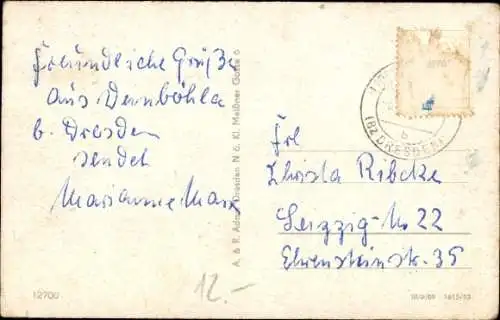 Freundliche Grüße
aus Weinböhla
b. Dresden
sendet
Marianne Marx
A. & R. Adam, Dresden N 6, Kl. Meißner Gasse 6
(BZ DRESDEN)
b
Frl
Christa Ribcke
Leipzig-N 22
Ehrensteinstr. 35
12.-
12700
III/9/69 1615/53